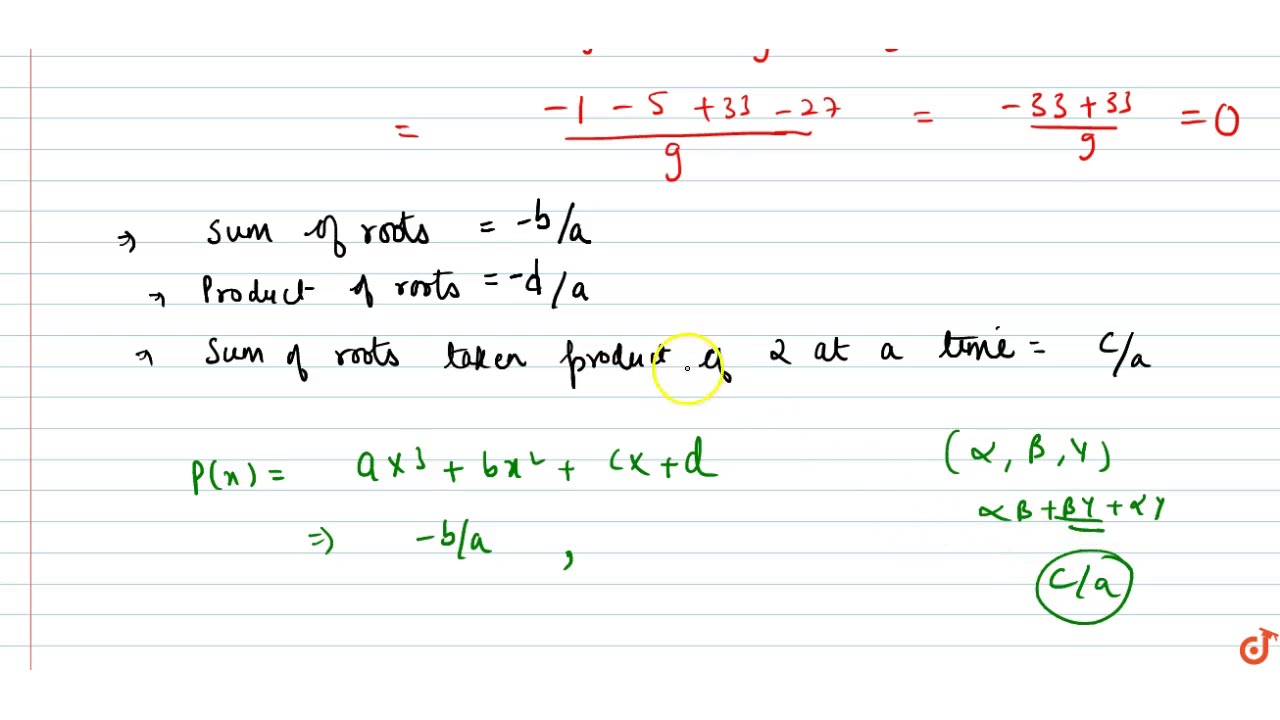 = -1 - 5 + 33 - 27 / 9 = -33 + 33 / 9 = 0
⇒ Sum of roots = -b/a
⇒ Product of roots = -d/a
⇒ Sum of roots taken product of 2 at a time = c/a
P(x) = ax³ + bx² + cx + d (α, β, γ)
αβ + βγ + αγ
⇒ -b/a ,
c/a